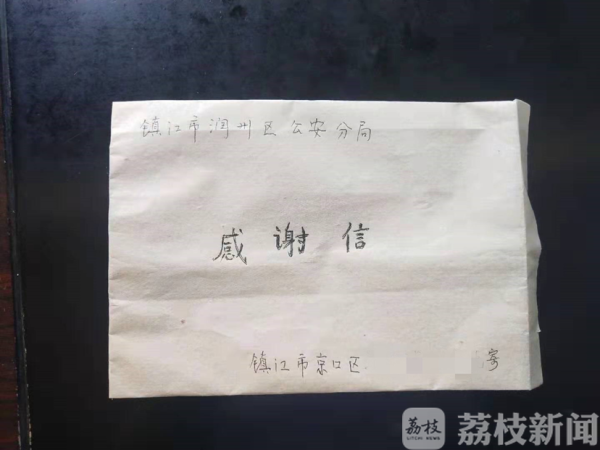 镇江市润州区公安分局
感谢信
镇江市京口区 寄
荔枝
LITCHI NEWS
荔枝新闻